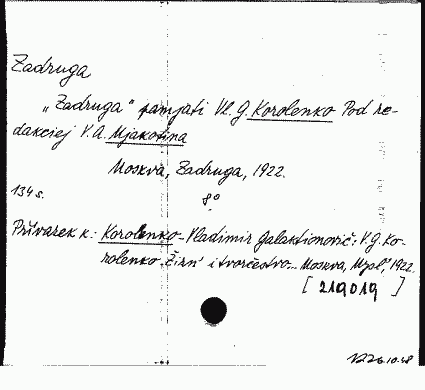 Zadruga
„Zadruga“ pamjati Vl. G. Korolenko Pod re-
dakciej V. A. Mjakotina
Moskva, Zadruga, 1922.
134 s.
8°
Přívazek k.: Korolenko Vladimir Galaktionovič: V. G. Ko-
rolenko Žizn' i tvorčestvo... Moskva, Mysl', 1922.
[ 219019 ]
26.10.48